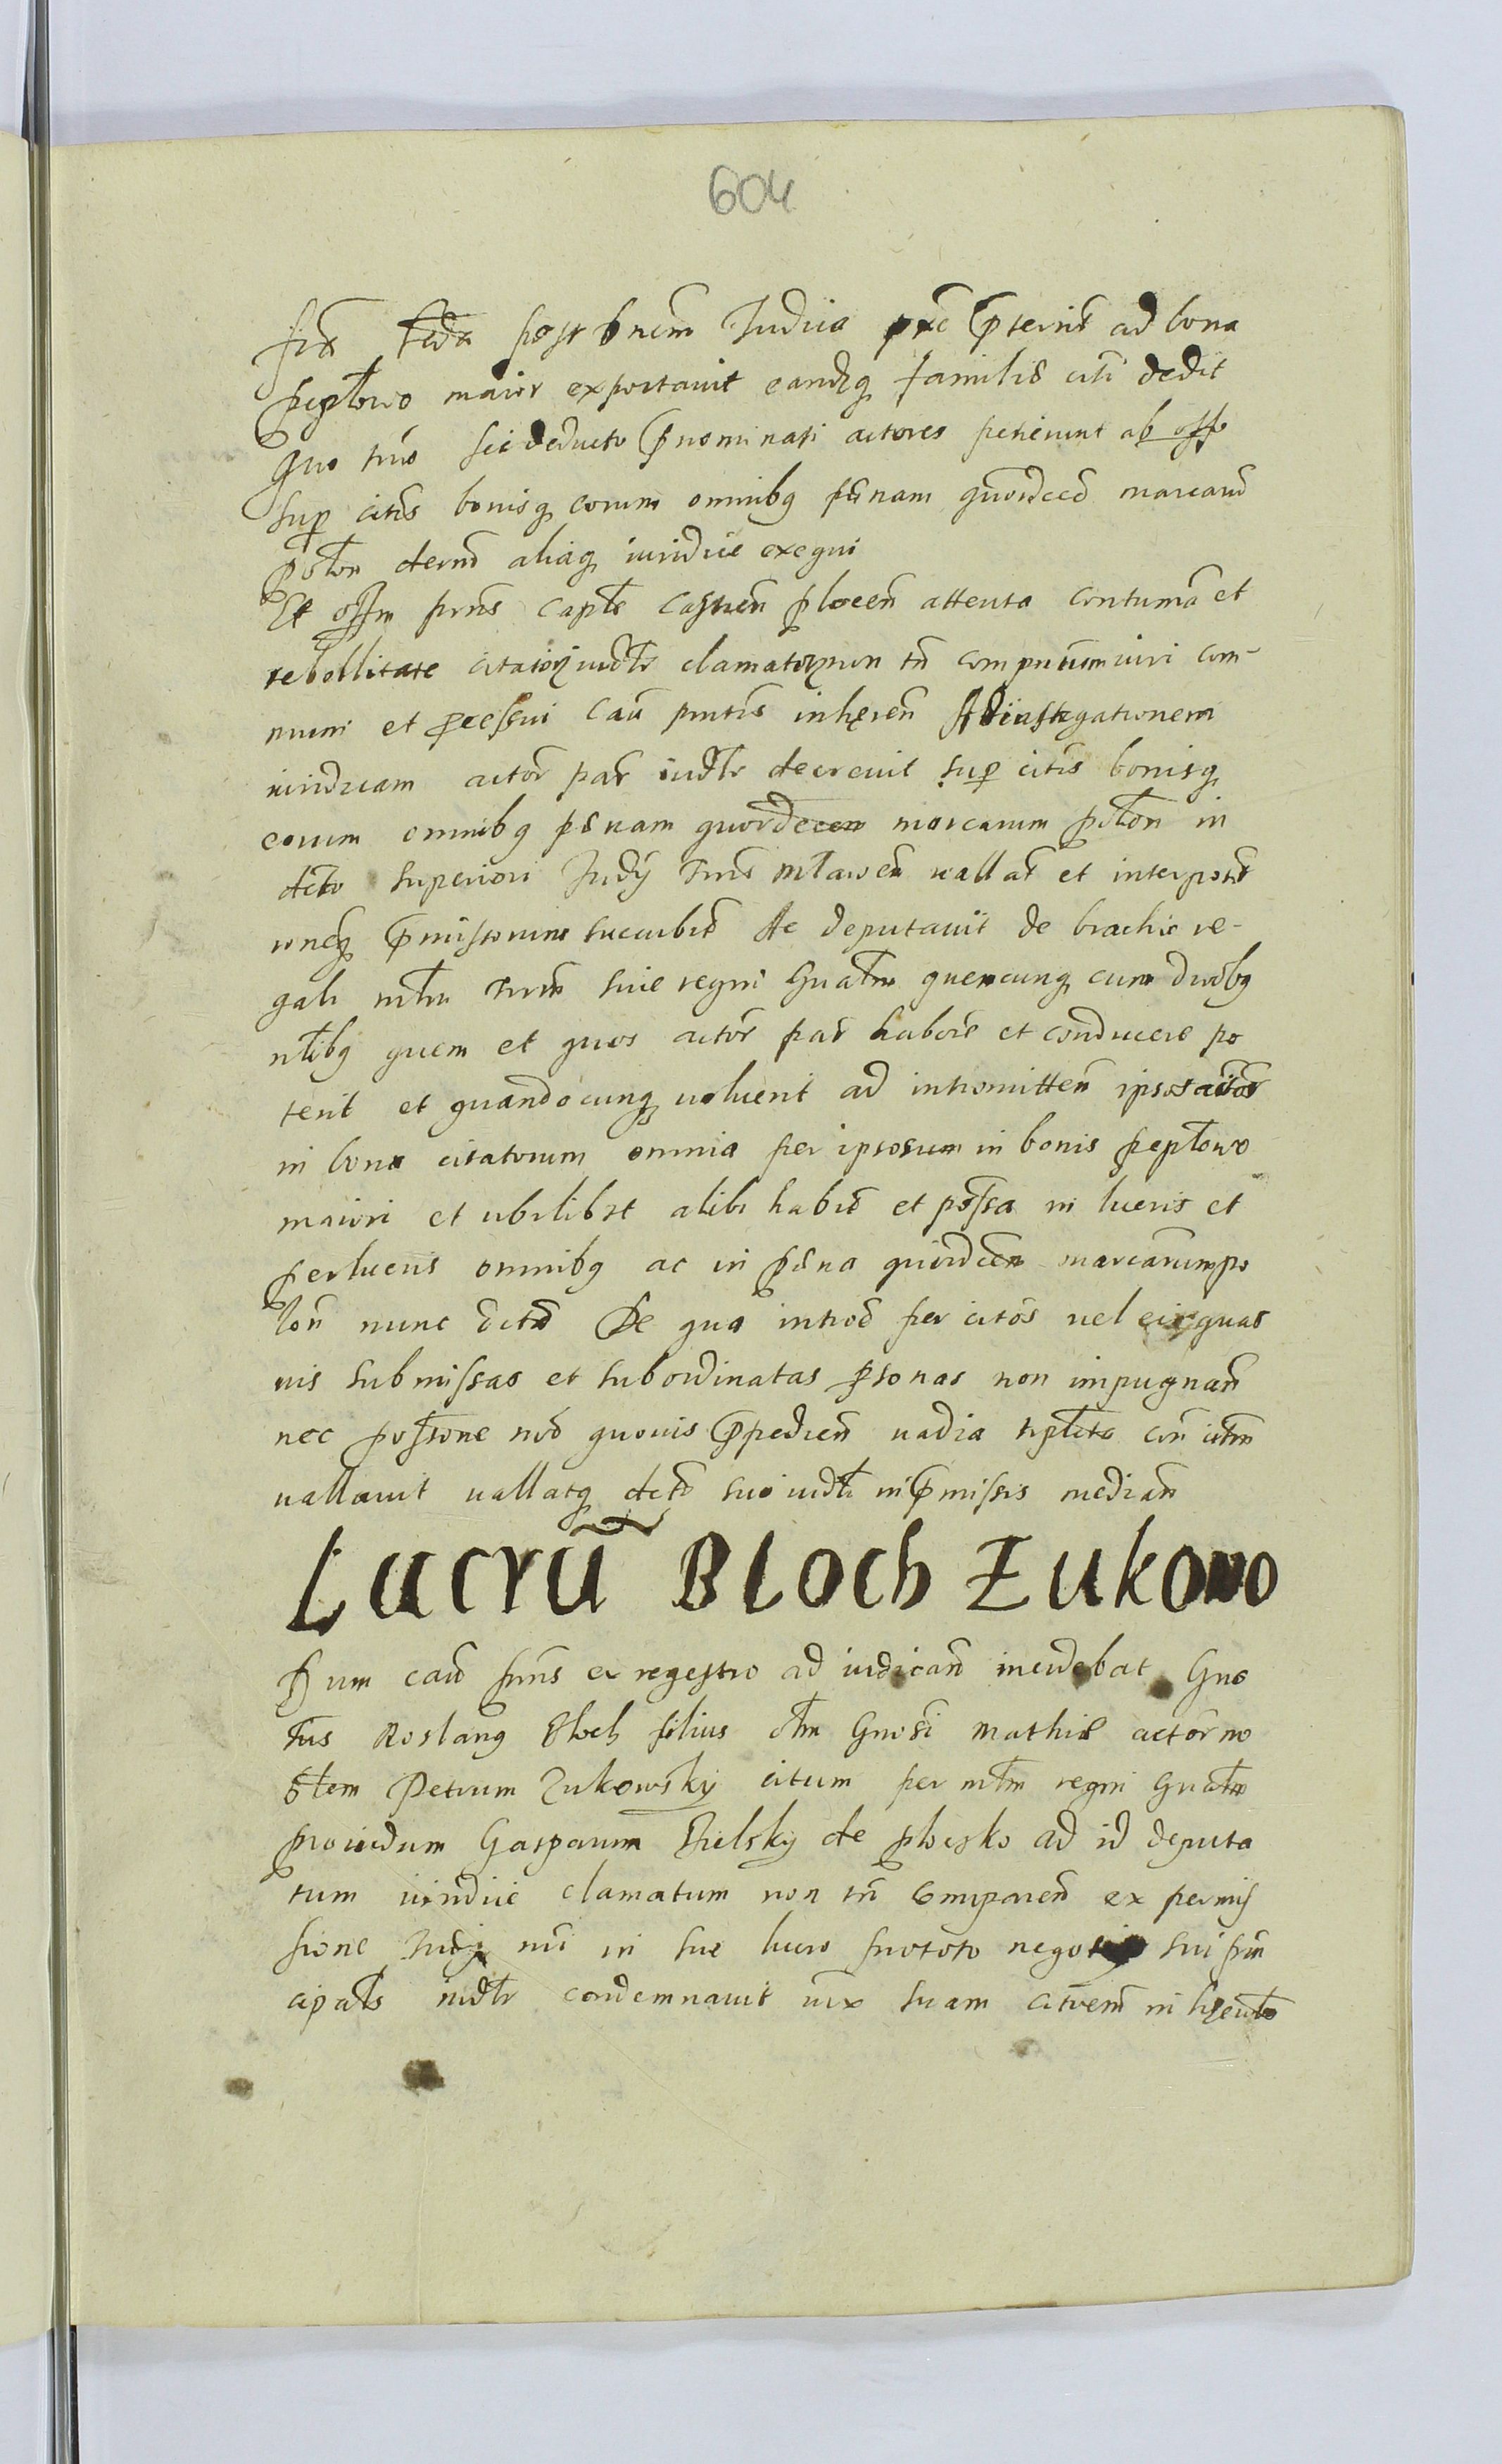 604
fra feda post bnem Judicia pxe pterit ad bona
peplowo maior exportavit eandq familie citi dedit
Quo tmo sic deducto pnominati actores petierunt ab offo
sup citis bonisq eorum omnibq penam quordeced marcaru
polon decerni aliaq iuridice exequi
Et offm pnns captle castren plocen attenta contuma et
rebellitate citatorz iudlr clamatorz non tn compntium iuri com-
muni et pcessui cau pntis inheren Ad instigationem
iuridicam actor par iudlr decrevit sup citis bonisq
eorum omnibq penam quordecen marcarum polon in
dcto superiori Judy trns mlawen vallat et interposit
ioneq pmissorum succubit Ac deputavit de brachio re-
gali mlm trrm sive regni Gnalm quencunq cum duobq
nlibq quem et quos actor par habere et conducere po
terit et quandocunq voluerit ad intromitten ipsos actor
in bona citatorum omnia per ipsorum in bonis peplowo
maiori et ubilibet alibi habit et possa in lucris et
perlucris omnibq ac in pena quordecen marcarum po
lon nunc dcta De qua introd per citos vel eis quas
vis submissas et subordinatas psonas non impugnan
nec possione mod quovis ppedien vadia triplcto con citm
vallavit vallatq dcto suo iudli in pmissis median
Lucru Bloch Zukowo
Dum cau pnns ex regestro ad iudican incidebat Gno
sus Roslanq Bloch filius olm Gnosi Mathie actor no
blem Petrum Zukowsky citum per mlm regni Gnalm
providum Gasparum Bielsky de ploczko ad id deputa
tum iuridice clamatum non tn comparen ex permis
sione Judy nri in sue lucro prototo negotio sui prin
cipalis iudlr condemnavit iux suam citoem in hentem